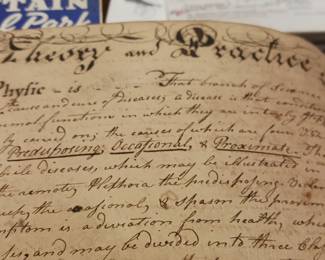 TAIN
Park
Theory and Practice
Physic - is - That branch of Science
and cure of diseases; a disease is that condition
functions in which they are
carried on; the causes of which are four
Predisposing, Occasional, & Proximate.
diseases, which may be illustrated in
the remote, the predisposing
the occasional, & spasm the proxim
is a deviation from health, whi
and may be divided into three Cla